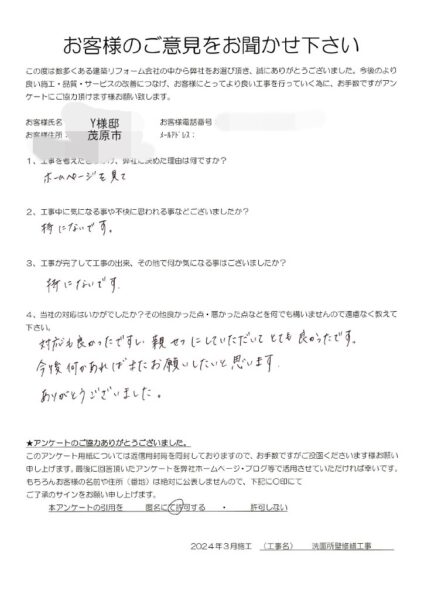 お客様のご意見をお聞かせ下さい
この度は数多くある建築リフォーム会社の中から弊社をお選び頂き、誠にありがとうございました。今後のより
良い施工・品質・サービスの改善につなげ、お客様にとってより良い工事を行っていく為に、お手数ですがアン
ケートにご協力頂けます様お願い致します。
お客様氏名： Y様邸 お客様電話番号
お客様住所： 茂原市 メールアドレス：
1、工事を考えた 、弊社に決めた理由は何ですか？
ホームページを見て
2、工事中に気になる事や不快に思われる事などございましたか？
特にないです。
3、工事が完了して工事の出来、その他で何か気になる事はございましたか？
特にないです。
4、当社の対応はいかがでしたか？その他良かった点・悪かった点などを何でも構いませんので遠慮なく教えて
下さい。
対応も良かったですし、親せつにしていただいてとても良かったです。
今後何かあればまたお願いしたいと思います。
ありがとうございました。
★アンケートのご協力ありがとうございました。
このアンケート用紙については返信用封筒を同封しておりますので、お手数ですがご投函くださいます様お願い
申し上げます。最後に回答頂いたアンケートを弊社ホームページ・ブログ等で活用させていただければ幸いです。
もちろんお客様の名前や住所（番地）は絶対に公表しませんので、下記に〇印にて
ご了承のサインをお願い申し上げます。
本アンケートの引用を 匿名にて許可する ・ 許可しない
2024年3月施工 （工事名） 洗面所壁修繕工事